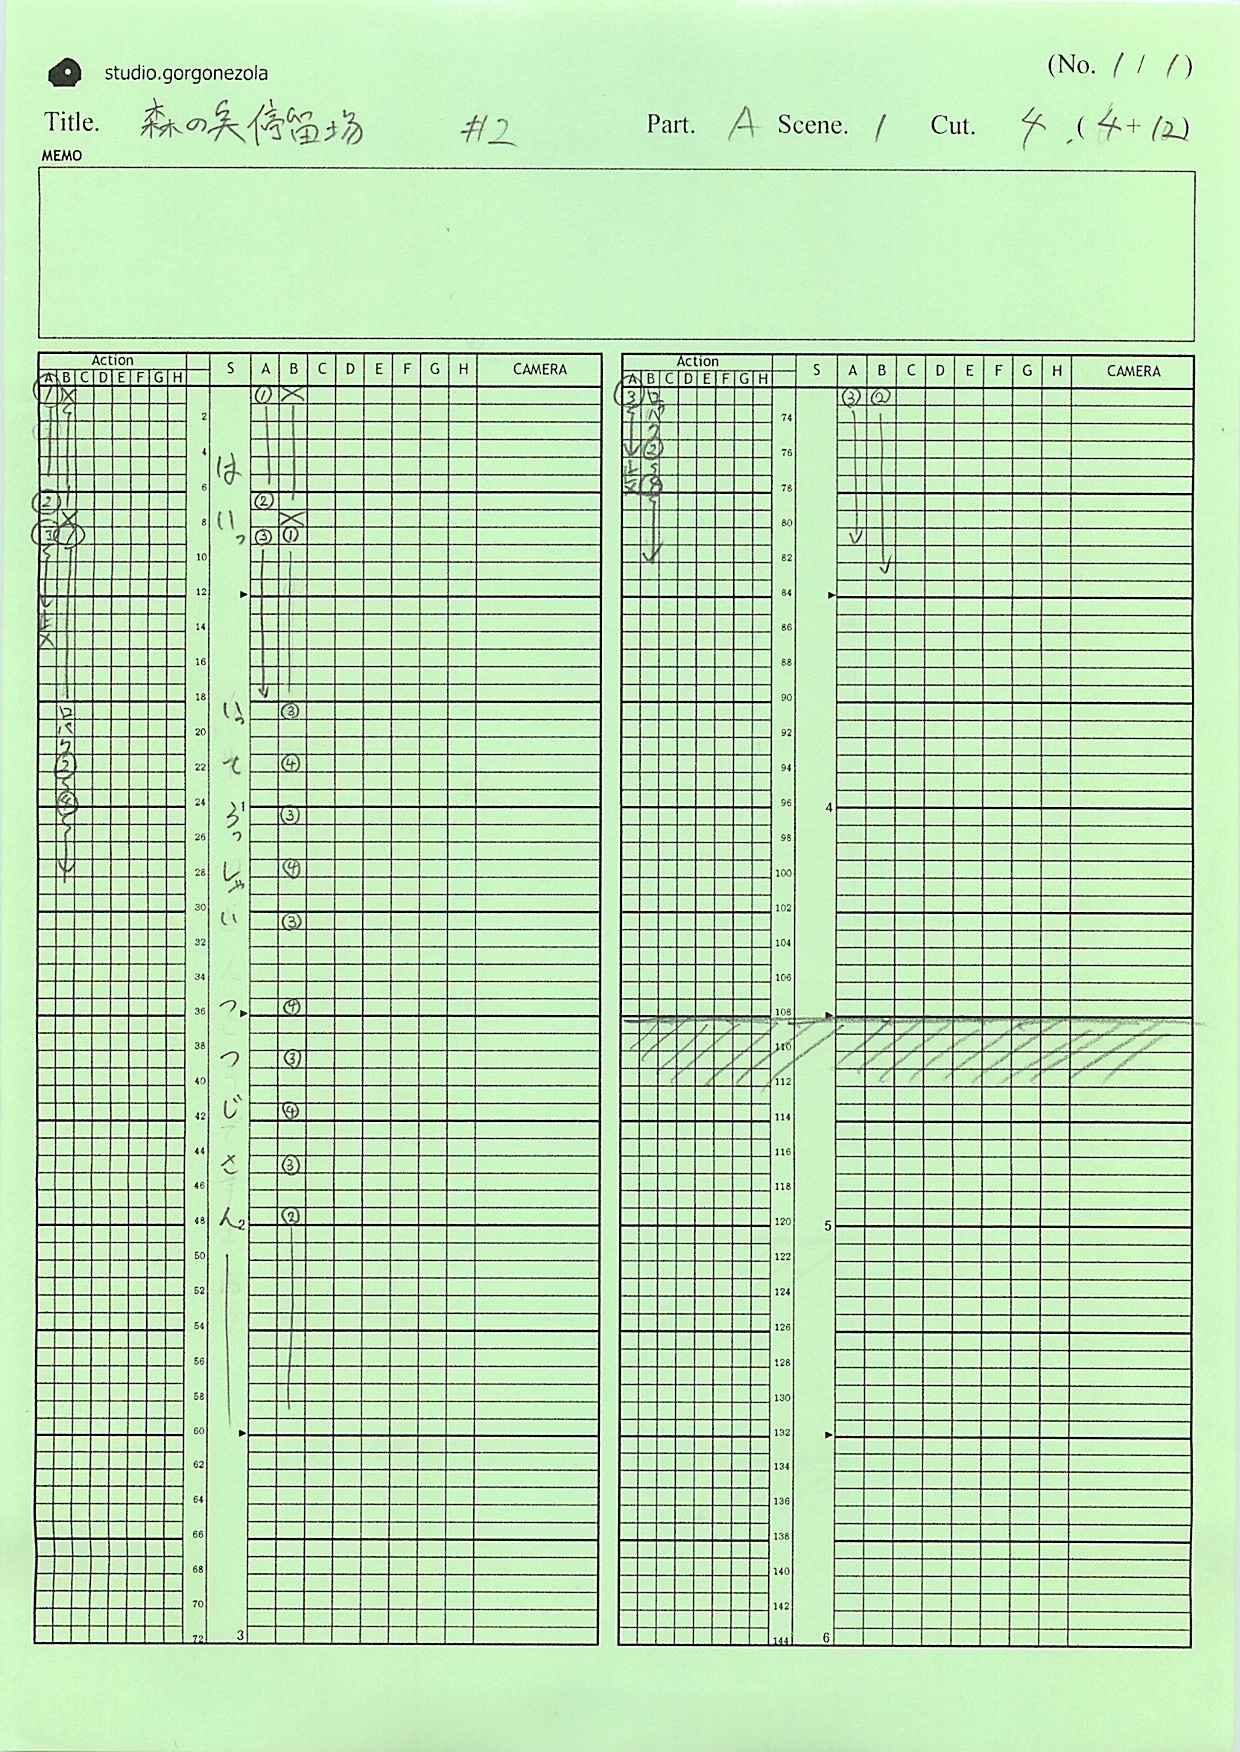 studio.gorgonezola
(No. 1 / 1)
Title. 森の矢停留場 #2 Part. A Scene. 1 Cut. 4 (4+12)
MEMO
Action S A B C D E F G H CAMERA
A B C D E F G H
① × ① ×
2
4
は
6
② ②
いっ
8 × ×
③ ① ③ ①
10
12
14
×
16
18
いっ ③
ロパク
20
② て ④
22
④ 24 1 ③
26
28 しゃ ④
30 い ③
32
34
っ ④
36
38 つ ③
40
42 じ ④
44 さ ③
46
48 ん 2 ②
50
52
54
56
58
60
62
64
66
68
70
72 3
Action S A B C D E F G H CAMERA
A B C D E F G H
③ ロパク ③ ②
74
② 76
78
80
82
84
86
88
90
92
94
96 4
98
100
102
104
106
108
110
112
114
116
118
120 5
122
124
126
128
130
132
134
136
138
140
142
144 6